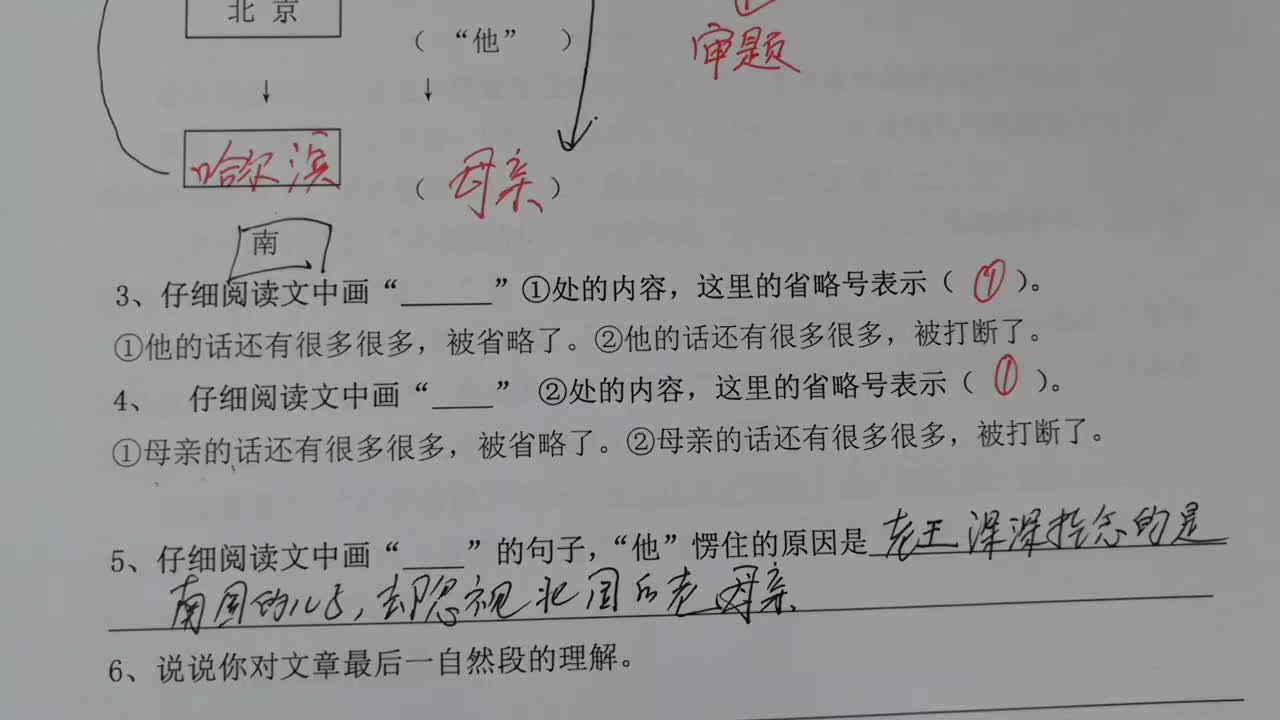 北京
(“他”)
审题
↓ ↓
哈尔滨 (母亲)
南
3、仔细阅读文中画“______”①处的内容，这里的省略号表示（①）。
①他的话还有很多很多，被省略了。②他的话还有很多很多，被打断了。
4、 仔细阅读文中画“____” ②处的内容，这里的省略号表示（①）。
①母亲的话还有很多很多，被省略了。②母亲的话还有很多很多，被打断了。
5、仔细阅读文中画“____”的句子，“他”愣住的原因是老王深深挂念的是
南国的儿子，却忽视北国的老母亲
6、说说你对文章最后一自然段的理解。